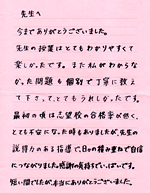 先生へ
今までありがとうございました。
先生の授業はとてもわかりやすくて
楽しかったです。また私がわからな
かった問題も個別で丁寧に教え
て下さって、とてもうれしかったです。
最初の頃は志望校の合格率が低く、
とても不安になった時もありましたが、先生の
説得力のある指導で、日々の積み重ねで自信
につながりました。感謝の気持ちでいっぱいです。
短い間でしたが、本当にありがとうございました。